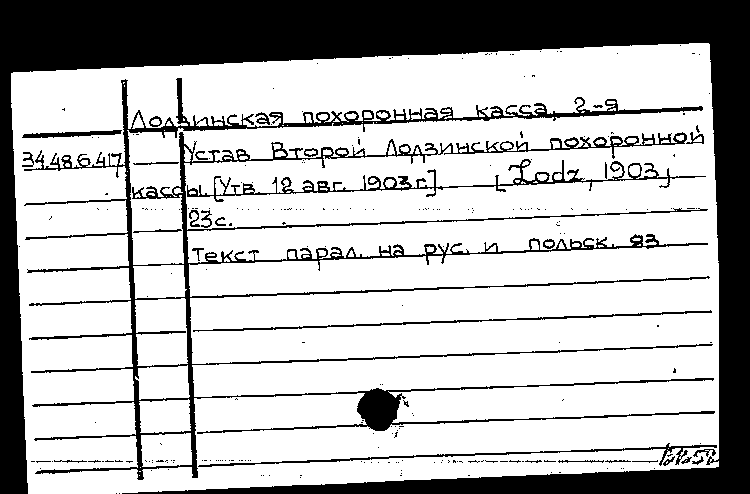 Лодзинская похоронная касса, 2-я
34.48.6.417 Устав Второй Лодзинской похоронной
кассы. [Утв. 12 авг. 1903 г.]. [Lodz, 1903]
23 с.
Текст парал. на рус. и польск. яз